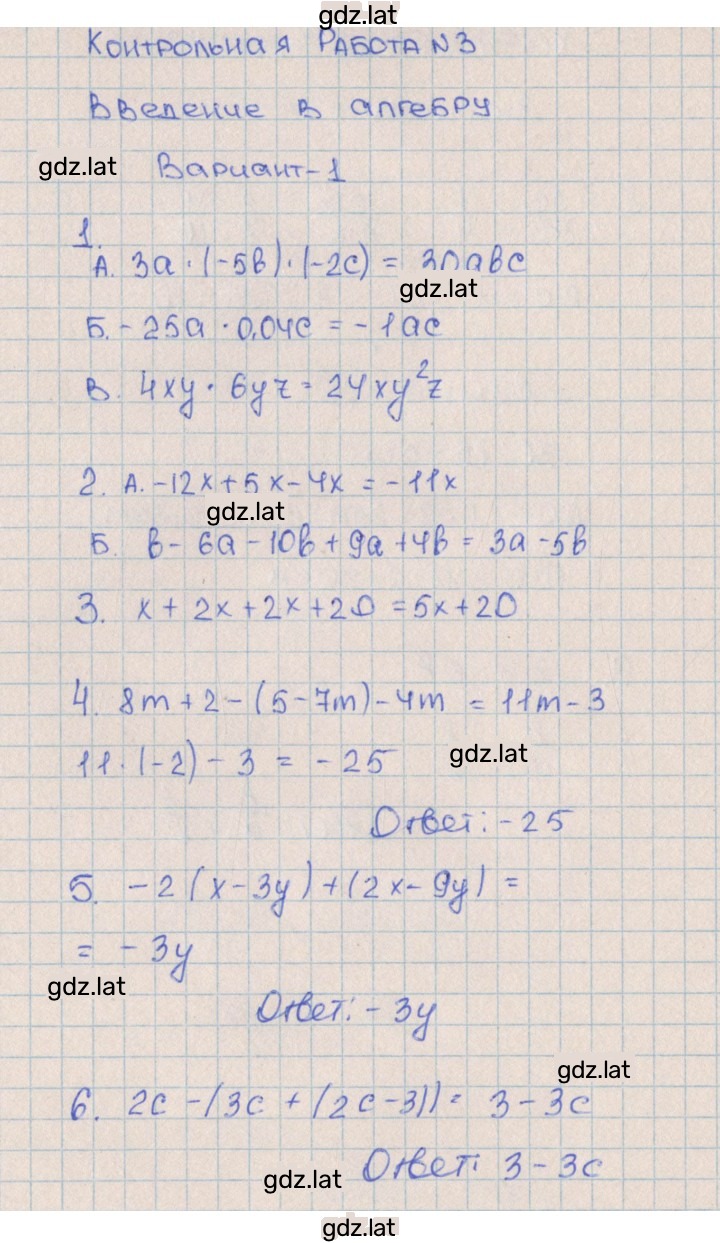 gdz.lat
Контрольная Работа N3
Введение в алгебру
gdz.lat Вариант-1
1.
А. 3a · (-5b) · (-2c) = 30abc
gdz.lat
Б. - 25a · 0,04c = - 1ac
В. 4xy · 6yz = 24xy²z
2. А. -12x + 5x - 4x = - 11x
gdz.lat
Б. b - 6a - 10b + 9a + 4b = 3a - 5b
3. x + 2x + 2x + 20 = 5x + 20
4. 8m + 2 - (5 - 7m) - 4m = 11m - 3
11 · (-2) - 3 = - 25 gdz.lat
Ответ: - 25
5. - 2 (x - 3y) + (2x - 9y) =
= - 3y
gdz.lat
Ответ: - 3y
gdz.lat
6. 2c - (3c + (2c - 3)) = 3 - 3c
gdz.lat Ответ: 3 - 3c
gdz.lat